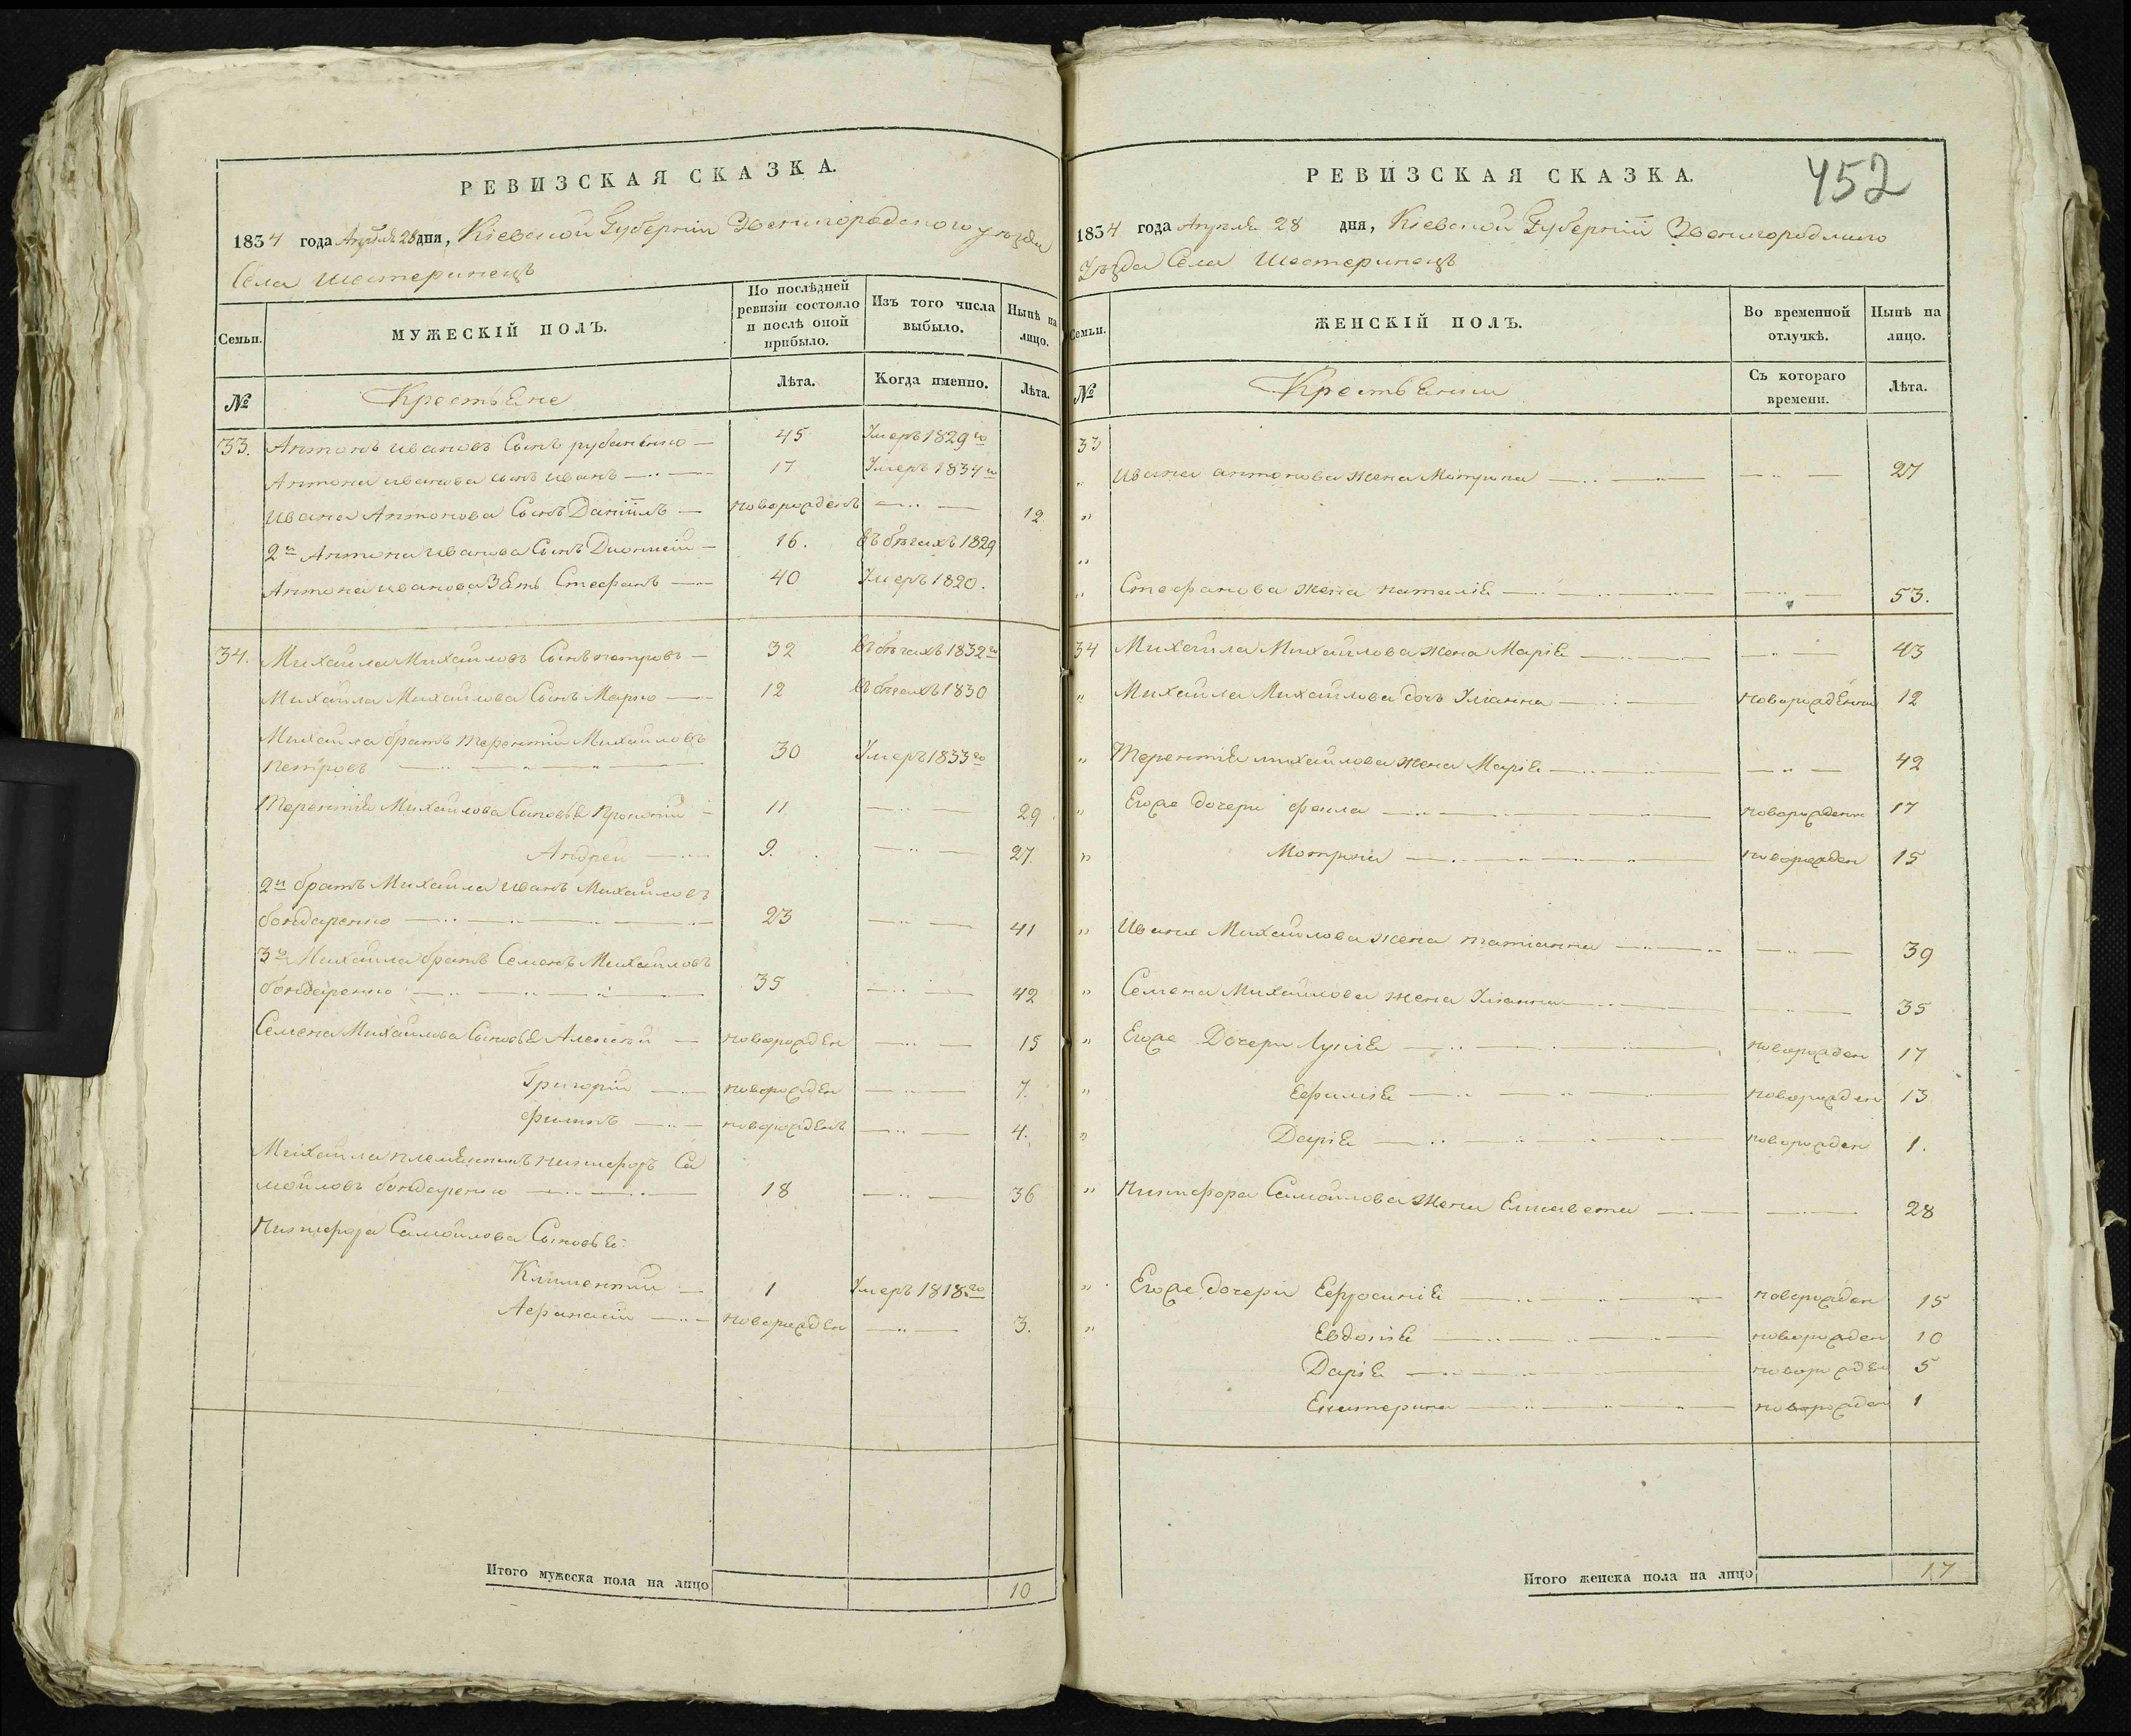 РЕВИЗСКАЯ СКАЗКА.
1834 года Апреля 28 дня, Кіевской Губерніи Звенигородскаго уезда
Села Шестеринецъ
Семьи.
МУЖЕСКІЙ ПОЛЪ.
По послѣдней ревизіи состояло и послѣ оной прибыло.
Изъ того числа выбыло.
Нынѣ на лицо.
№
Крестьяне
Лѣта.
Когда именно.
Лѣта.
33. Антонъ Ивановъ Сынъ рубаненко — 45 Умеръ 1829го
Антона иванова сынъ иванъ — 17 Умеръ 1834го
ивана Антонова Сынъ Даніилъ — новорожденъ — 12
2й Антона иванова Сынъ Дионисій — 16. въ бѣгахъ 1829
Антона иванова Зять Стефанъ — 40 Умеръ 1820.
34. Михайла Михайловъ Сынъ петровъ — 32 въ бѣгахъ 1832го
Михайла Михайлова Сынъ Марко — 12 въ бѣгахъ 1830
Михайла братъ терентій Михайловъ
петровъ — 30 Умеръ 1833го
терентія Михайлова Сыновья — 11 — 29
Андрей — 9. — 27.
2й братъ Михайла иванъ Михайловъ
бондаренко — 23 — 41
3й Михайла братъ Семенъ Михайловъ
бондаренко — 35 — 42
Семена Михайлова Сыновья Алексѣй — новорожден — 15
Григорій — новорожден — 7.
филипъ — новорожденъ — 4.
Михайла племянникъ никифоръ Са
мойловъ бондаренко — 18 — 36
Никифора Самойлова Сыновья
Климентий — 1 Умеръ 1818.го
Афанасій — новорожден — 3.
Итого мужеска пола на лицо 10
РЕВИЗСКАЯ СКАЗКА.
452
1834 года Апреля 28 дня, Кіевской Губерніи Звенигородскаго
Уѣзда Села Шестеринецъ
Семьи.
ЖЕНСКІЙ ПОЛЪ.
Во временной отлучкѣ.
Нынѣ на лицо.
№
Съ котораго времени.
Лѣта.
33
" ивана антонова жена Мотрона — 27
"
"
" Стефанова жена наталія — 53.
34 Михайла Михайлова жена Марія — 43
" Михайла Михайлова дочь Уліанна — новорожденна 12
" терентія михайлова жена Марія — 42
" Егоже дочери фекла — новорожденн 17
" Мотрона — новорожден 15
" ивана Михайлова жена татіанна — 39
" Семена Михайлова жена Уліанна — 35
" Егоже Дочери — новорожден 17
" Ефимія — новорожден 13
" Дарія — новорожден 1.
" никифора Самойлова жена Елисавета — 28
" Егоже дочери Ефросинія — новорожден 15
" Евдокія — новорожден 10
Дарія — новорожден 5
Екатерина — новорожден 1
Итого женска пола на лицо 17